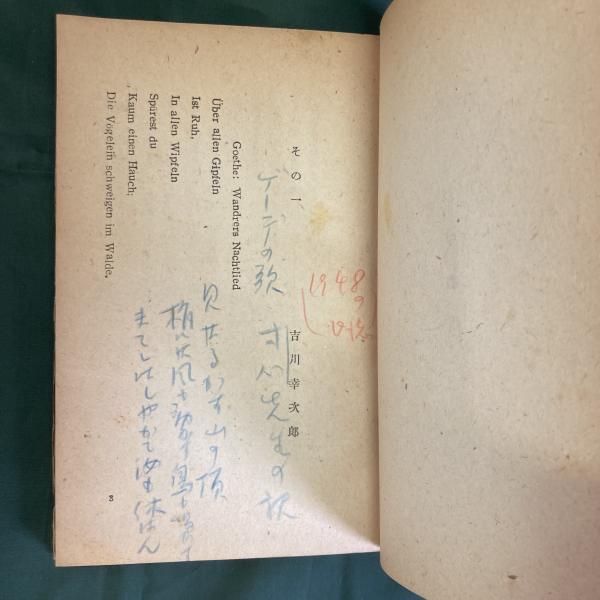 その一
吉川幸次郎
1948
の
ゲーテの歌 寸心先生の訳
Goethe: Wandrers Nachtlied
Über allen Gipfeln
Ist Ruh,
In allen Wipfeln
Spürest du
Kaum einen Hauch;
Die Vögelein schweigen im Walde.
見はるかす山の頂
梢には風も動かず鳥も鳴かず
まてしばしやがて汝も休はん
3